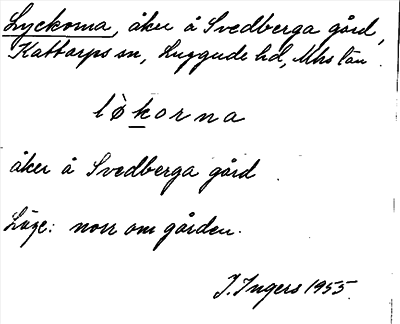 Lyckorna, åker å Svedberga gård,
Kattarps sn, Luggude hd, Mhs län.
lø̀korna
åker å Svedberga gård
Läge: norr om gården.
I. Ingers 1955.